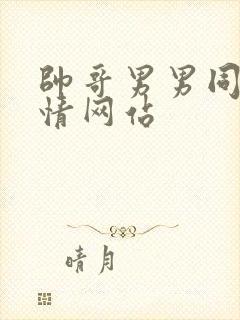 帥哥男男同
情网佔
晴月